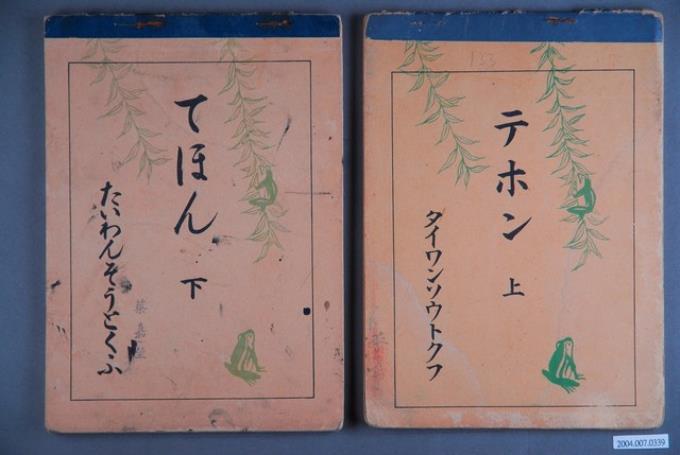 てほん
下
たいわんそうとくふ
テホン
上
タイワンソウトクフ
153
2004.007.0339